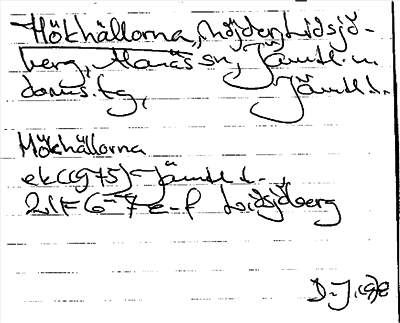 Hökhällorna, höjder, Lidsjö-
berg, Alanäs sn, Jämtl. n.
doms. tg, Jämtl. l.
Hökhällorna
ek (1975) Jämtl l.,
21F 6-7 e-f Lidsjöberg
D.J. 1978